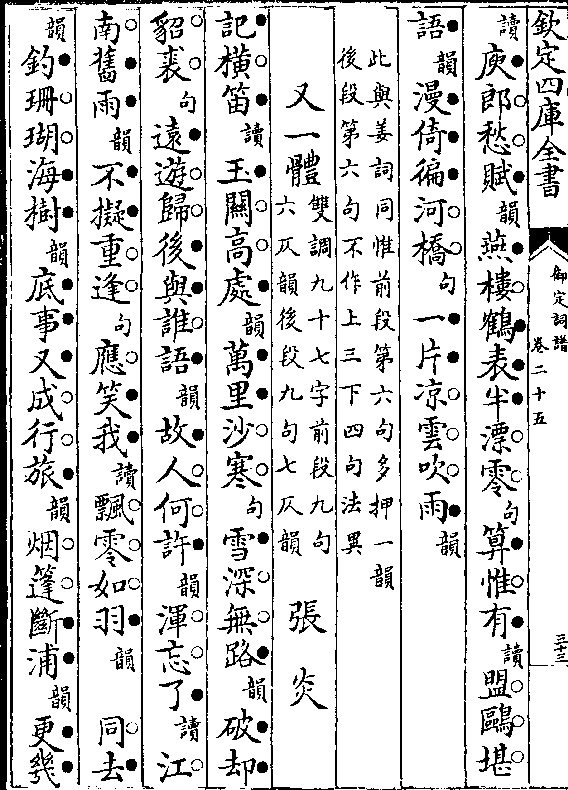 欽定四庫全書
御定詞譜
卷二十五
三十三
讀庾郎愁賦韻燕樓鶴表半漂零句算惟有讀盟鷗堪
語韻漫倚徧河橋句一片凉雲吹雨韻
此與姜詞同惟前段第六句多押一韻
後段第六句不作上三下四句法異
又一體雙調九十七字前段九句
六仄韻後段九句七仄韻
張炎
記橫笛讀玉關高處韻萬里沙寒句雪深無路韻破却
貂裘句遠遊歸後與誰語韻故人何許韻渾忘了讀江
南舊雨韻不擬重逢句應笑我讀飄零如羽韻同去
韻釣珊瑚海樹韻底事又成行旅韻烟篷斷浦韻更幾